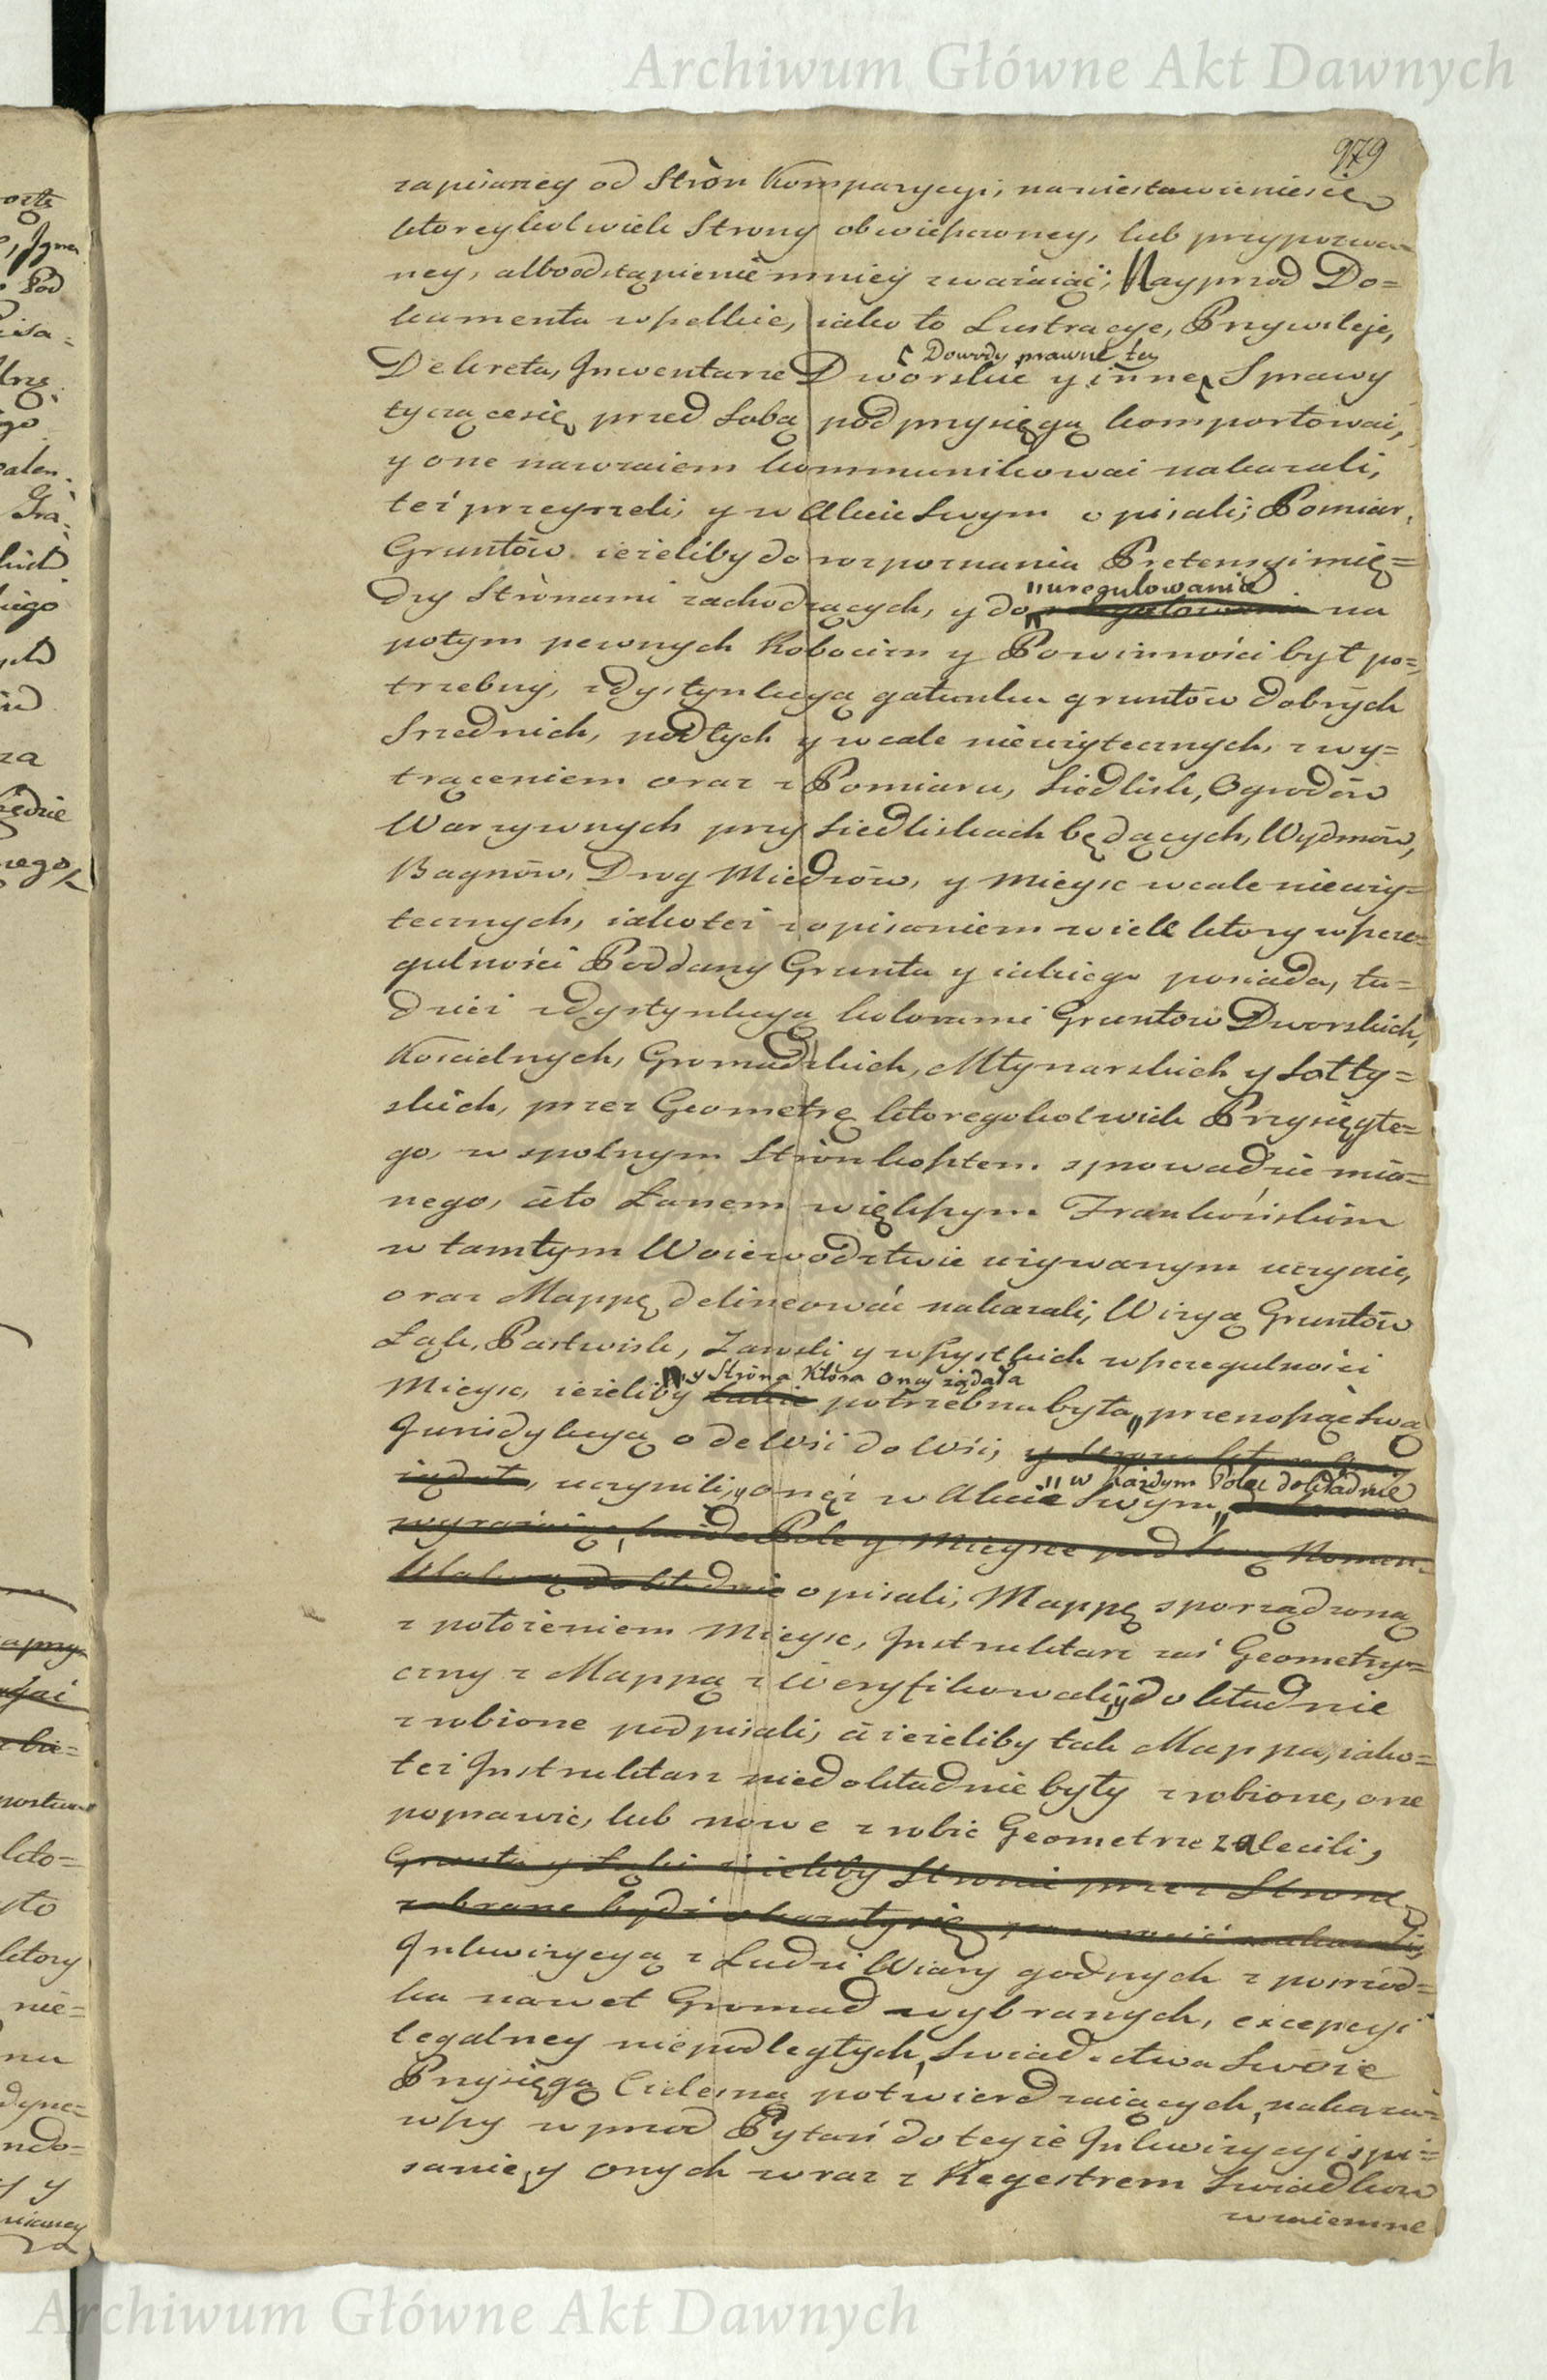 Archiwum Główne Akt Dawnych
979
zapisaney od Strón Komparycyi; na niestawienie się
któreykolwiek Strony obwieszczoney, lub przypozwa=
ney, albo odstąpienie mniey zważaiąć; Nayprzod Do=
kumenta wszelkie, iako to Lustracye, Przywileje,
Dowody prawne tey
Dekreta, Inwentarze Dworskie y inne Sprawy
tyczące się, przed Sobą pod przysięgą komportować,
y one nawzaiem kommunikować nakazali,
też przeyrzeli; y w Akcie Swym opisali; Pomiar,
Gruntów ieżeliby do rozpoznania Pretensyi mię=
uregulowania
dzy Strónami zachodzących, y do na
potym pewnych Robocizn y Powinności był po=
trzebny, z dystynkcyą gatunku gruntów dobrych
Srzednich, podłych y wcale nieużytecznych, z wy=
trąceniem oraz z Pomiaru, Siedlisk, Ogrodów
Warzywnych przy Siedliskach będących, Wydmów,
Bagnów, Drog Miedzów, y Mieysc wcale nieuży=
tecznych, iakoteż z opisaniem wiele który w szcze=
gulności Poddany Gruntu y iakiego posiada, tu=
dzież z dystynkcyą kolorami Gruntow Dworskich,
Kościelnych, Gromadzkich, Młynarskich y Sołty=
skich, przez Geometrę któregokolwiek Przysięgłe=
go, wspolnym Strón kosztem sprowadzić mia=
nego, á to Łanem większym Frankońskim
w tamtym Woiewodztwie używanym uczynić,
oraz Mappę delineować nakazali, Wizyą Gruntów
Łąk, Pastwisk, Zarośli y wszystkich w szczegulności
y Stróna Która Oney żądała
Mieysc, ieżeliby takie potrzebna była, przenosząc Swą
Jurisdykcyą od Wsi do Wsi, y
w każdym Polu dokładnie
żądał, uczynili, onęż w Akcie Swym
wyrażaiąc, każde Pole y Mieysce pod Swą Nomen=
klaturą dokładnie opisali; Mappę sporządzoną
z położeniem Mieysc, Instruktarz zaś Geometry=
czny z Mappą zweryfikowali, y dokładnie
zrobione podpisali, á ieżeliby tak Mappa, iako=
też Instruktarz niedokładnie były zrobione, one
poprawić, lub nowe zrobić Geometrze zalecili,
Grunta y Łąki ieżeliby Stronie przez Stronę
zabrane bydź okazały się, nakazali,
Inkwizycyą z Ludzi Wiary godnych z pośrzod=
ka nawet Gromad wybranych, excepcyi
legalney niepodległych, Swiadectwa Swoie
Przysięgą Cielesną potwierdzaiących, nakaza=
wszy wprzod Pytań do teyże Inkwizycyi spi=
sanie, y onych wraz z Regestrem Swiadkow
wzaiemne
Archiwum Główne Akt Dawnych